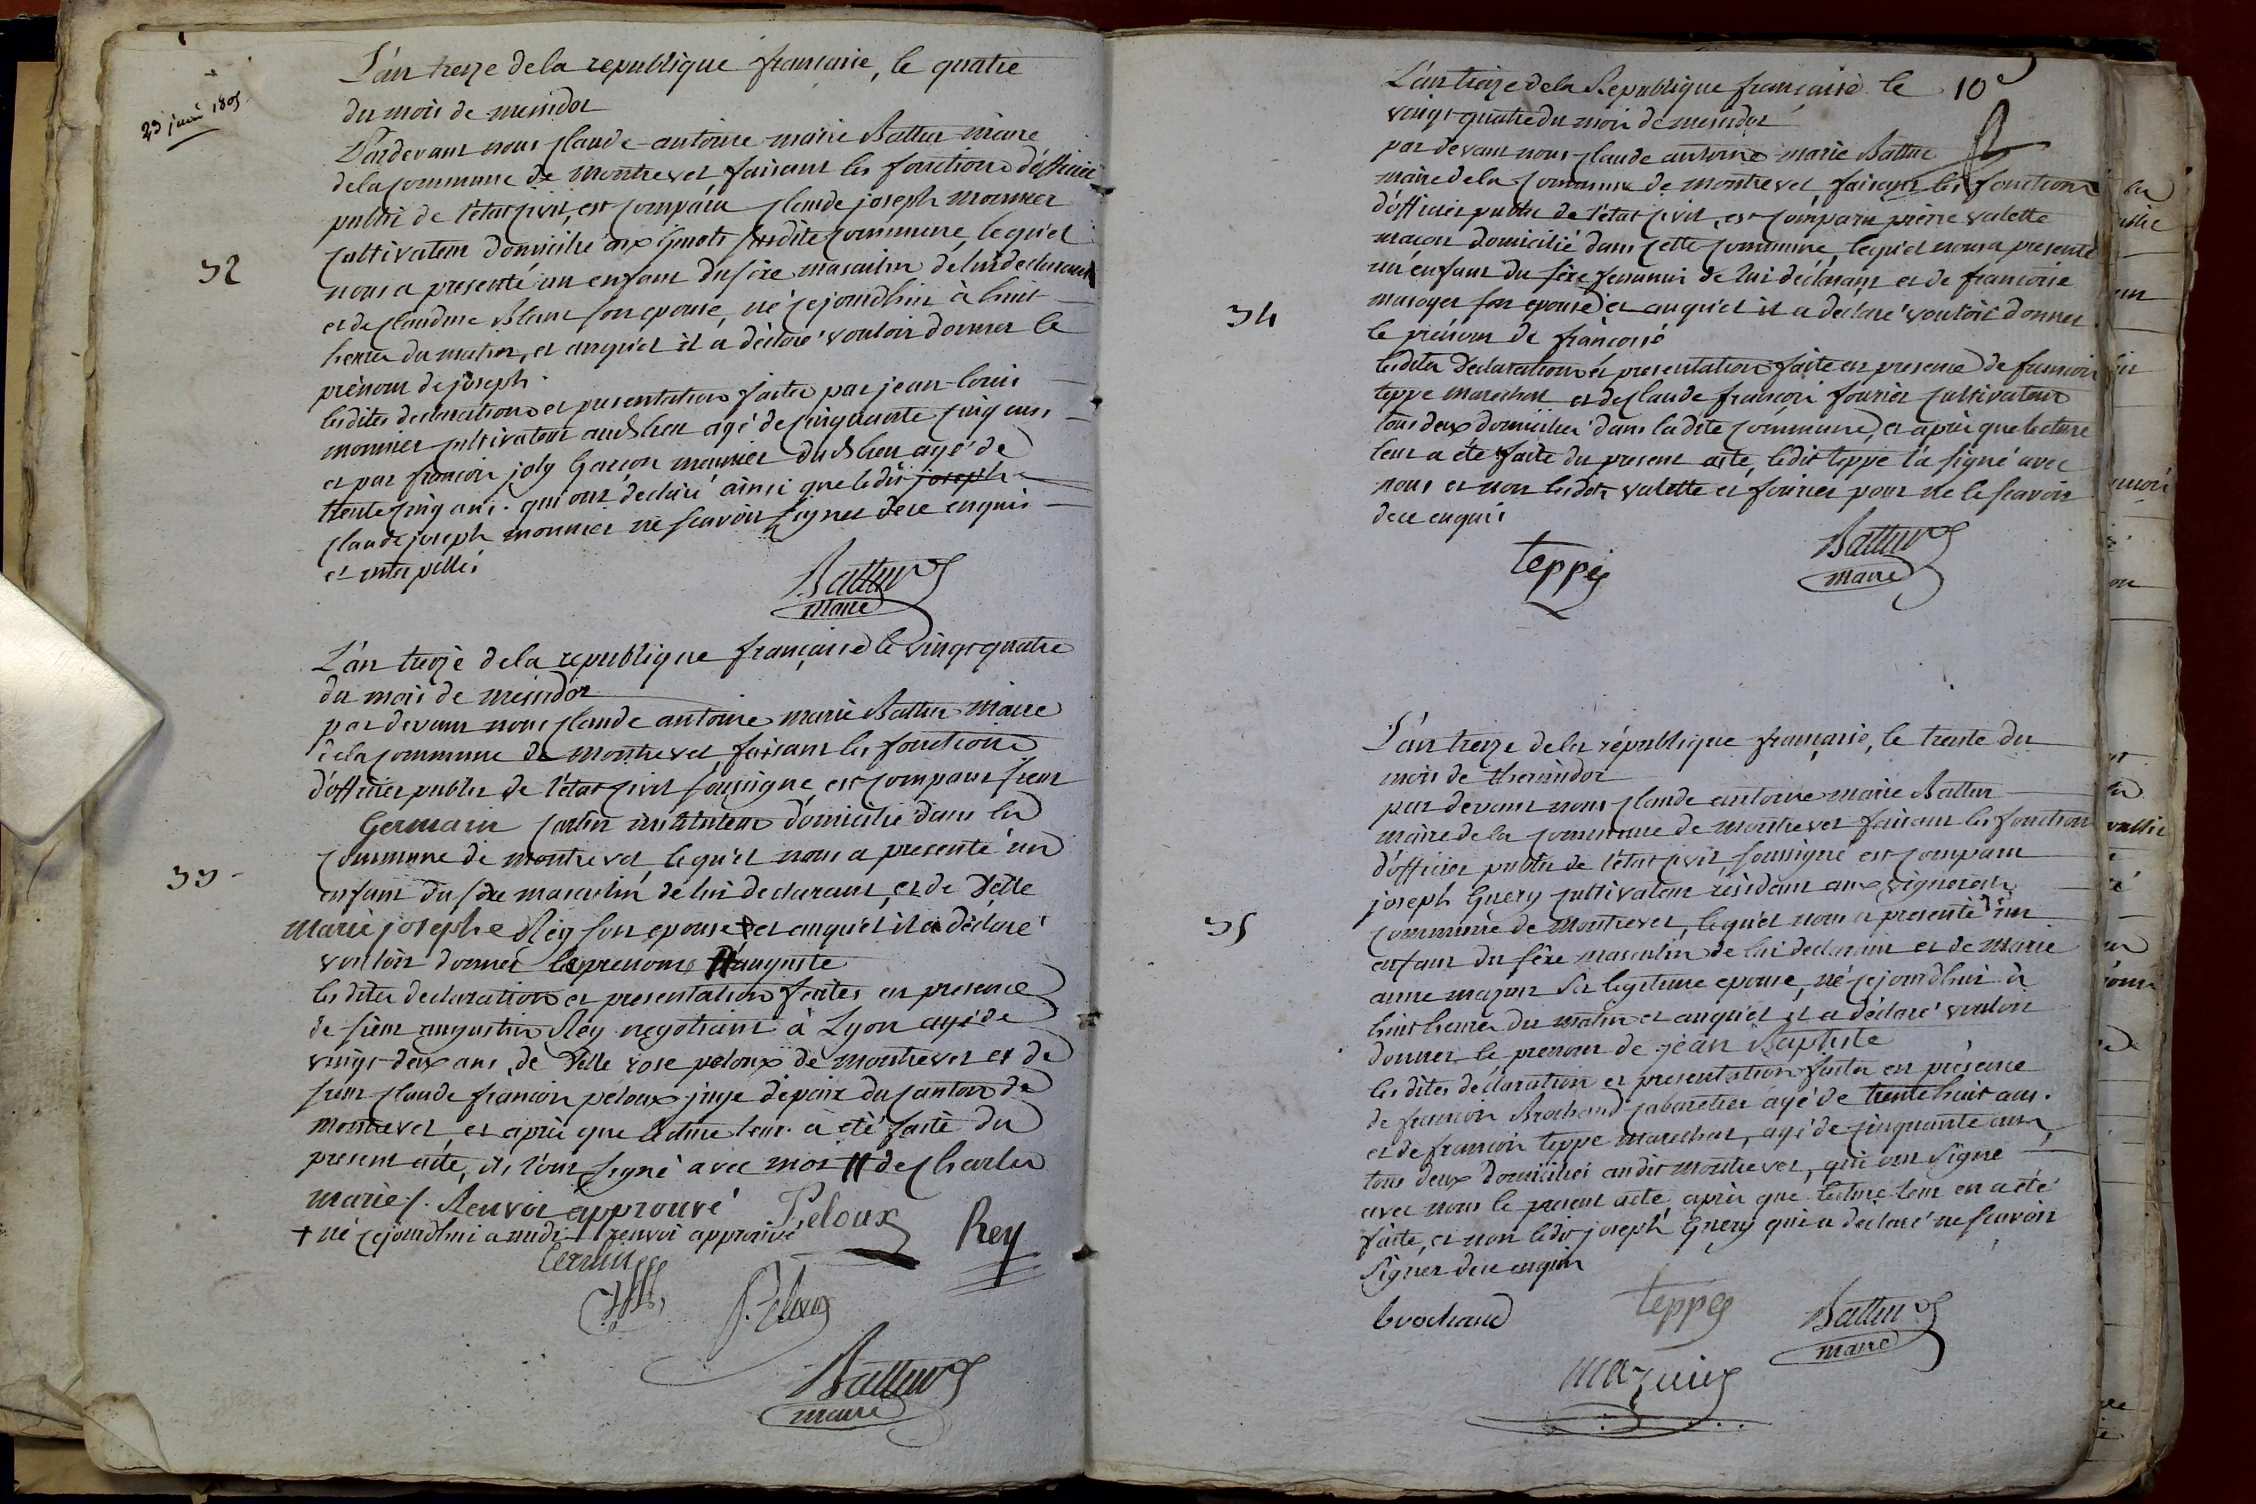 23 juin 1805
L'an treize de la republique francaise, le quatre
du mois de messidor
Pardevant nous claude-antoine marie Battur maire
de la commune de Montrevel faisant les fonctions d'officier
public de l'état civil, est comparu claude joseph monnier
cultivateur domicilié aux susdite commune, lequel
32
nous a presenté un enfant du sexe masculin de lui declarant
et de claudine Blanc son epouse, né cejourdhui à huit
heures du matin, et auquel il a déclaré vouloir donner le
prénom de joseph.
lesdites declarations et presentations faites par jean-louis
monnier cultivateur audit lieu agé de cinquante cinq ans
et par francois joly garcon meunier dudit lieu agé de
trente cinq ans. qui ont declaré ainsi que ledit joseph
claude joseph monnier ne scavoir signer de ce enquis
et interpellés
Battur
maire
L'an treize de la republique française le vingt quatre
du mois de messidor
par devant nous claude antoine marie Battur maire
de la commune de Montrevel, faisant les fonctions
d'officier public de l'état civil soussigné, est comparu sieur
Germain instituteur domicilié dans la
33
commune de montrevel, lequel nous a presenté un
enfant du sexe masculin de lui declarant, et de Delle
marie josephe Rey son epouse + et auquel il a déclaré
vouloir donner le prenoms # auguste
lesdites declaration et presentation faites en presence
de sieur augustin Rey negotiant à Lyon agé de
vingt-deux ans, de Delle rose peloux de montrevel et de
sieur claude francois peloux juge de paix du canton de
montrevel, et après que lecture leur a été faite du
present acte, ils l'ont signé avec moi # de charles
marie /. Renvoi approuvé
+ né cejourdhui a midi + renvoi approuvé
Peloux
Rey
Battur
maire
10e
L'an treize de la Republique française le
vingt-quatre du mois de messidor
par devant nous claude antoine marie Battur
maire de la commune de montrevel, faisant les fonctions
d'officier public de l'état civil, est comparu pierre valette
macon domicilié dans cette commune, lequel nous a presenté
un enfant du sexe feminin de lui déclarant et de francoise
34
son epouse et auquel il a declaré vouloir donner
le prénom de françoise
lesdites declarations et presentation faite en presence de francois
teppe marechal et de claude francois fourier cultivateur
tous deux domiciliés dans ladite commune, et après que lecture
leur a été faite du present acte, ledit teppe l'a signé avec
nous et non lesdits valette et fourier pour ne le scavoir
de ce enquis
teppe
Battur
maire
L'an treize de la république française, le trente du
mois de thermidor
par devant nous claude antoine marie Battur
maire de la commune de montrevel faisant les fonctions
d'officier public de l'état civil, soussigné est comparu
joseph Guery cultivateur résidant aux
35
commune de Montrevel, lequel nous a presenté un
enfant du sexe masculin de lui declarant et de marie
anne mazon sa legitime epouse, né cejourdhui à
huit heures du matin et auquel il a déclaré vouloir
donner le prenom de jean Baptiste
lesdites déclaration et presentation faites en présence
de francois Brochand cabaretier agé de trente huit ans.
et de francois teppe marechal, agé de cinquante ans,
tous deux domiciliés audit montrevel, qui ont signé
avec nous le present acte après que lecture leur en a été
faite, et non ledit joseph Guery qui a déclaré ne scavoir
signer de ce enquis
brochand
teppe
Battur
maire